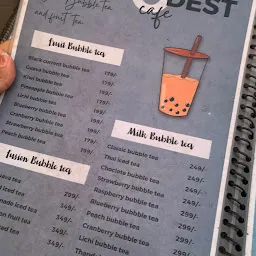 Bubble tea
and fruit tea
DEST
cafe
Fruit Bubble tea
Black current bubble tea 179/-
Guava bubble tea 179/-
Kiwi bubble tea 179/-
Pineapple bubble tea 179/-
Lichi bubble tea
Blueberry bubble tea
Cranberry bubble tea
Strawberry bubble tea 179/-
Peach bubble tea 179/-
Milk Bubble tea
Classic bubble tea 249/-
Thai iced tea 249/-
Choclate bubble tea 249/-
Strawberry bubble tea 249/-
Raspberry bubble tea 249/-
Blueberry bubble tea 299/-
Peach bubble tea 299/-
Cranberry bubble tea 299/-
Lichi bubble tea 299/-
Fusion Bubble tea
tea 299/-
iced tea 299/-
iced tea 349/-
fruit tea 349/-
iced tea 349/-